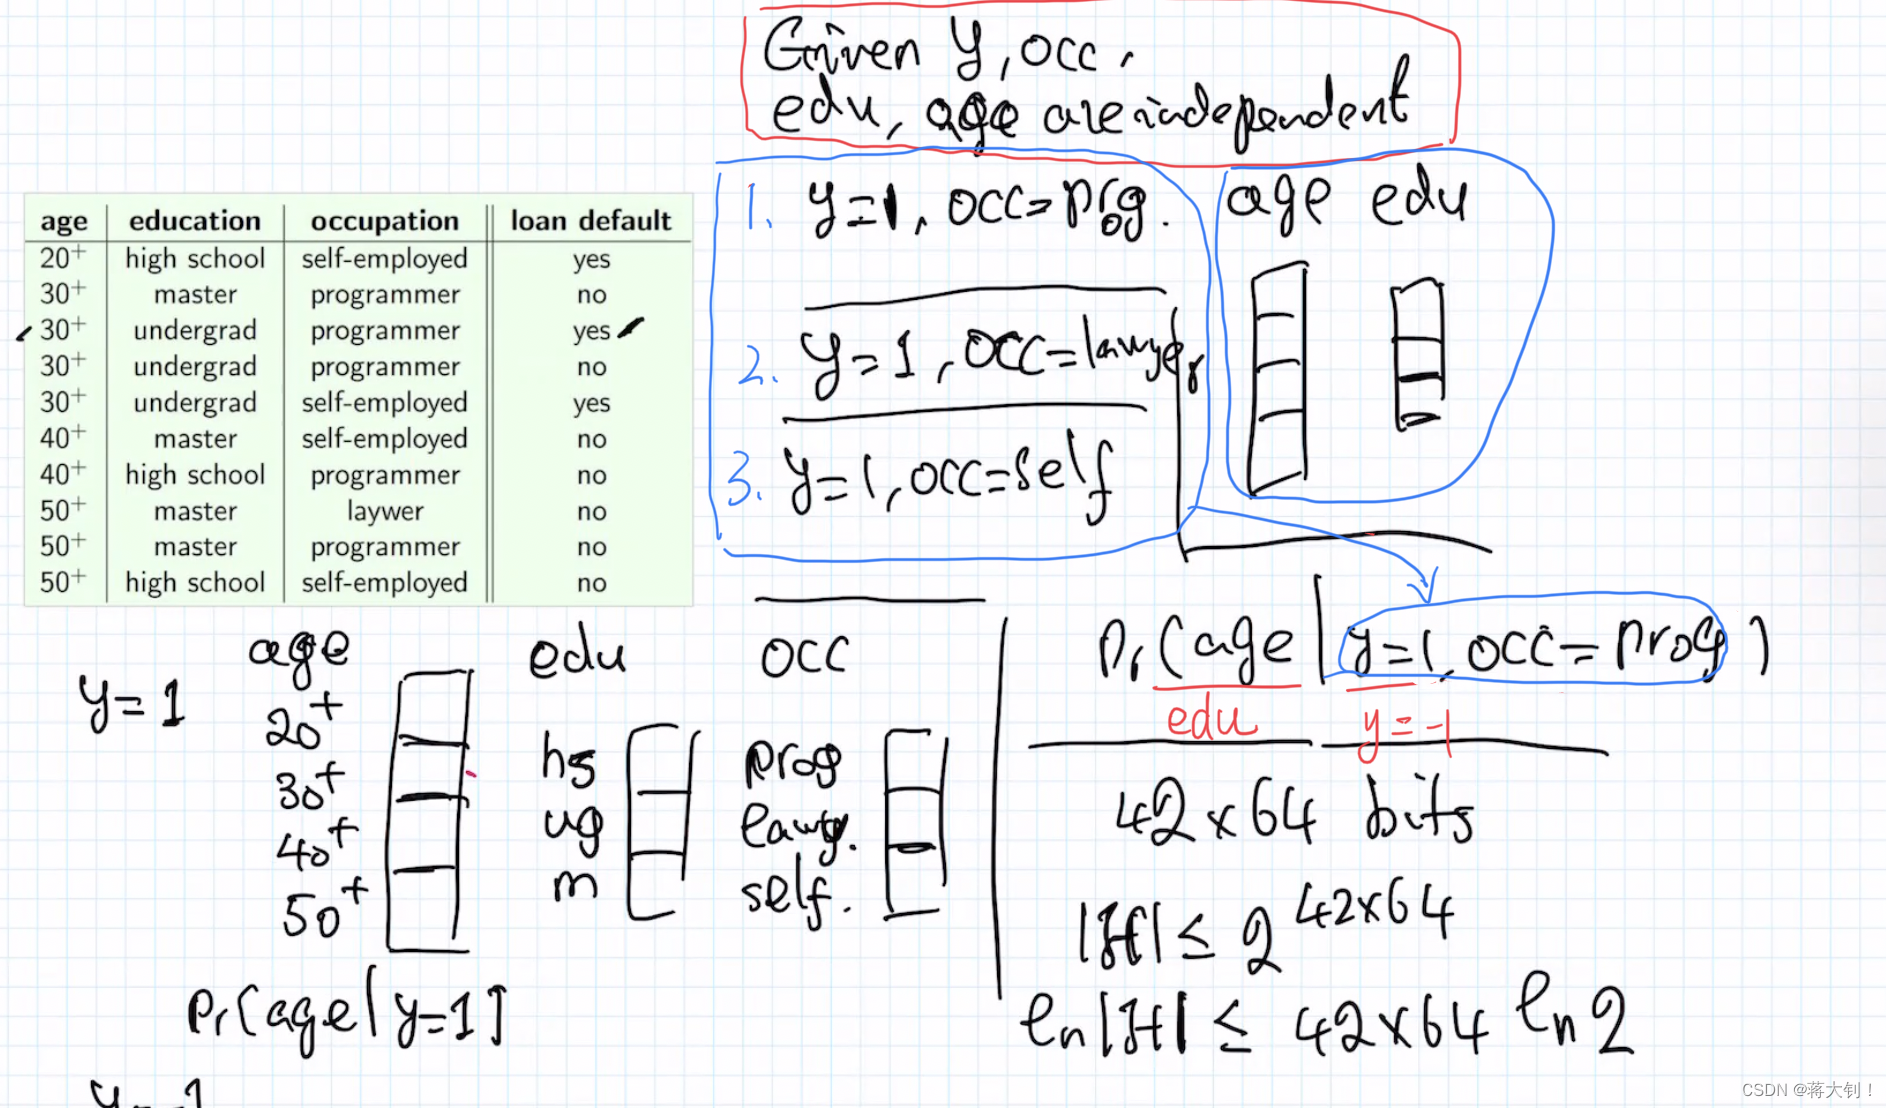 Given y, occ,
edu, age are independent
age education occupation loan default
20+ high school self-employed yes
30+ master programmer no
30+ undergrad programmer yes
30+ undergrad programmer no
30+ undergrad self-employed yes
40+ master self-employed no
40+ high school programmer no
50+ master laywer no
50+ master programmer no
50+ high school self-employed no
1. y=1, occ=prog.
2. y=1, occ=lawyer
3. y=1, occ=self
age edu
y=1
age
20+
30+
40+
50+
edu
hs
ug
m
occ
prog
lawy.
self.
Pr[age|y=1]
y=-1
Pr(age|y=1, occ=prog)
edu y=-1
42x64 bits
|H| ≤ 2^42x64
ln|H| ≤ 42x64 ln2
CSDN @蒋大钊！